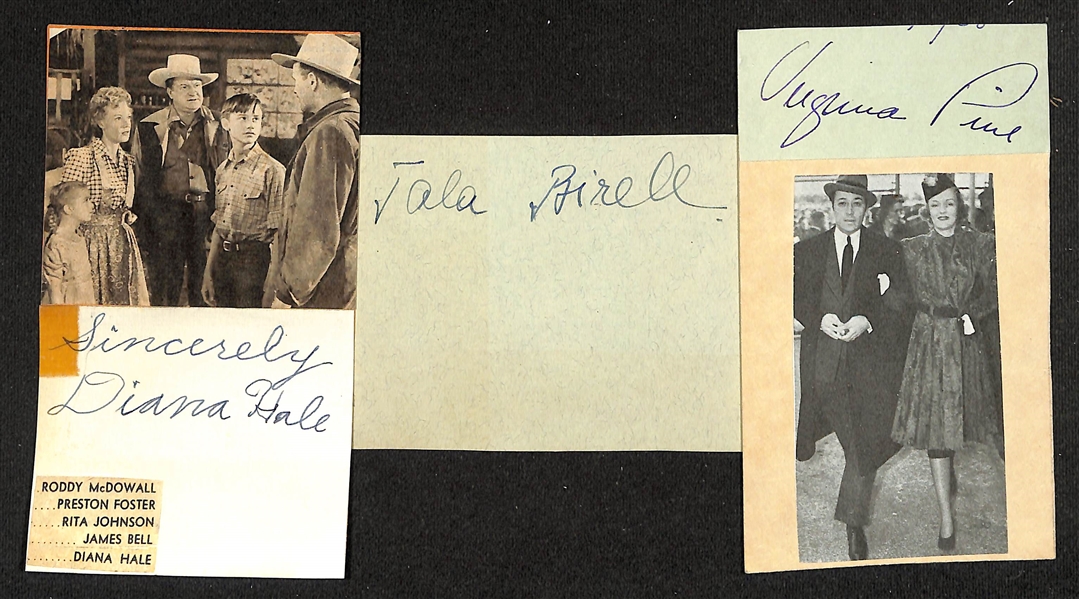 Sincerely
Diana Hale
RODDY McDOWALL
....PRESTON FOSTER
.....RITA JOHNSON
........ JAMES BELL
........DIANA HALE
Tala Birell
Virginia Pine